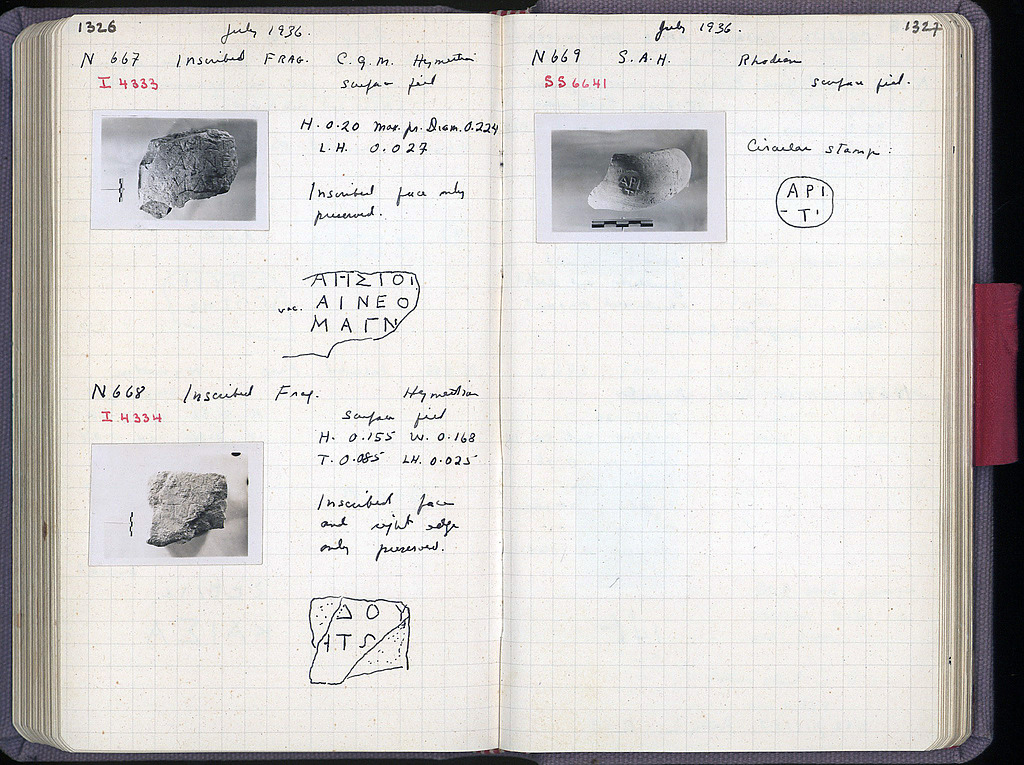 1326
July 1936.
N 667 Inscribed FRAG. C.G.M. Hymettian
I 4333
surface field
H. 0.20 Max. pr. Diam. 0.224
L.H. 0.027
Inscribed face only
preserved.
ΑΗΣΙΟΙ
vac. ΑΙΝΕΟ
ΜΑΓΝ
N 668 Inscribed Frag. Hymettian
I 4334
surface field
H. 0.155 W. 0.168
T. 0.085 LH. 0.025
Inscribed face
and right edge
only preserved.
ΔΟΥ
ΗΤΩ
July 1936.
1327
N 669 S.A.H. Rhodian
SS 6641
surface field.
Circular stamp:
ΑΡΙ
ΑΡΙ
-ΤΙ